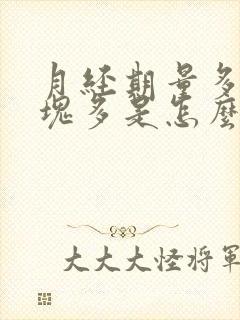 月经期量多
塊多是怎麼
大大大怪将軍